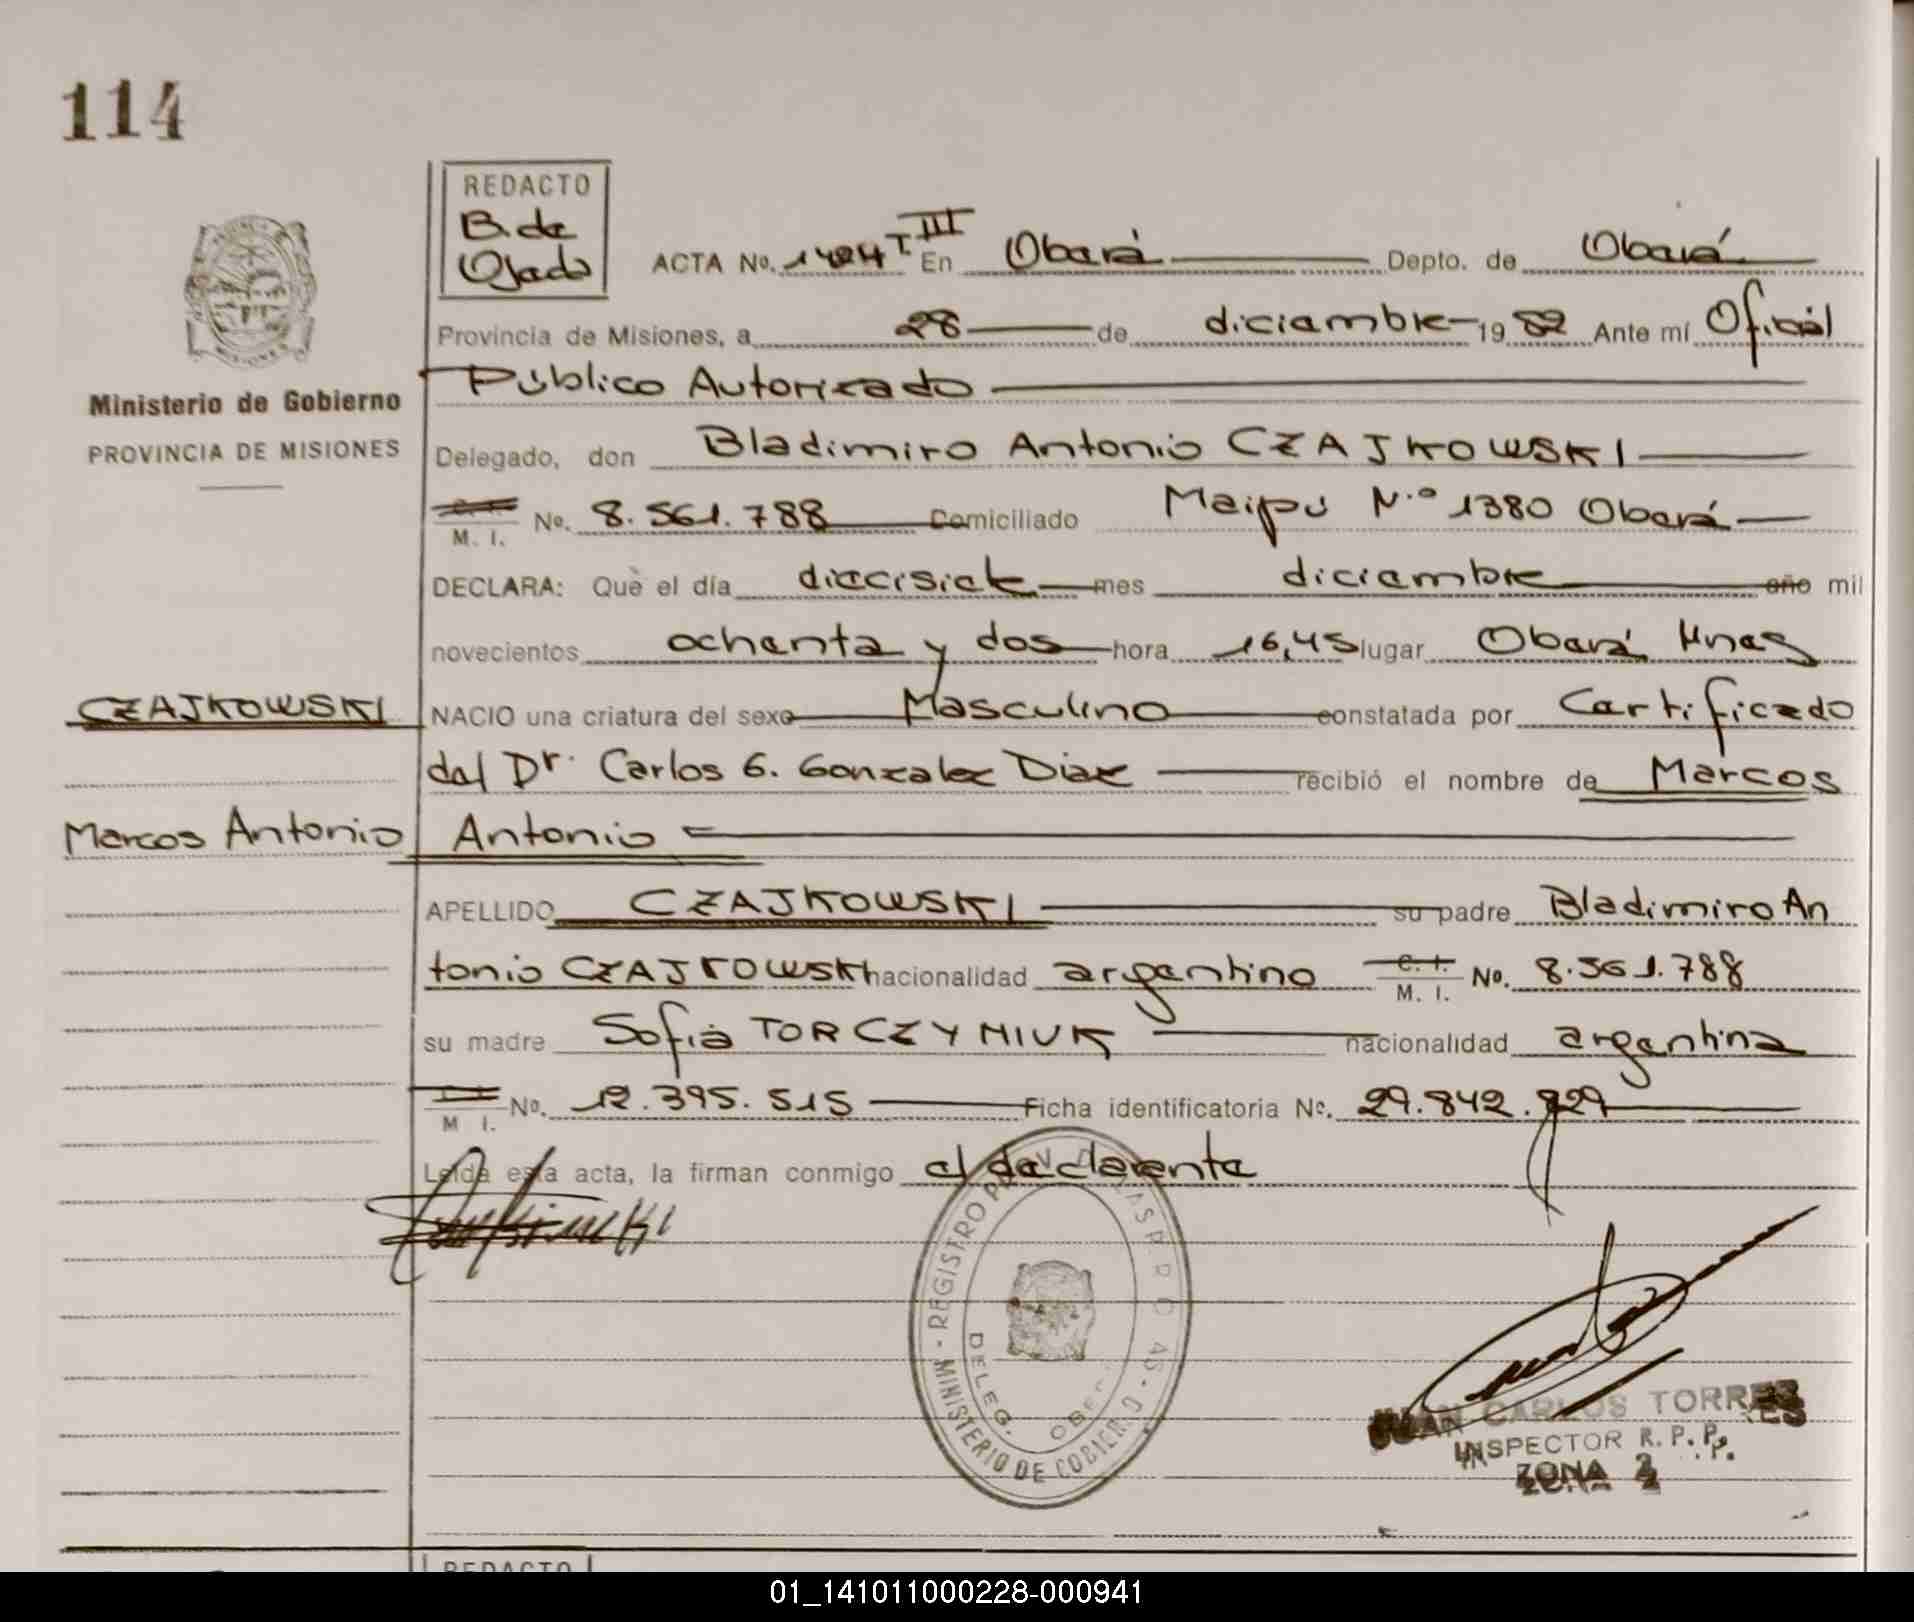 114
REDACTO
B. de
Ojeda
ACTA No. 1484 T III En Oberá Depto. de Oberá
Provincia de Misiones, a 28 de diciembre 19 82 Ante mí Oficial
Público Autorizado
Ministerio de Gobierno
PROVINCIA DE MISIONES
Delegado, don Bladimiro Antonio CZAJKOWSKI
M. I. No. 8.561.788 Domiciliado Maipú N.º 1380 Oberá
DECLARA: Què el día diecisiete mes diciembre año mil
novecientos ochenta y dos hora 16,45 lugar Oberá Mnes
CZAJKOWSKI
NACIO una criatura del sexo Masculino constatada por Certificado
del Dr. Carlos G. Gonzalez Diaz recibió el nombre de Marcos
Marcos Antonio
Antonio
APELLIDO CZAJKOWSKI su padre Bladimiro An
tonio CZAJKOWSKI nacionalidad argentino C. I. M. I. No. 8.561.788
su madre Sofia TORCZYNIUK nacionalidad argentina
M I. No. 12.395.515 Ficha identificatoria No. 29.842.829
Leída esta acta, la firman conmigo el declarante
REGISTRO PROV DE LAS PERSONAS
MINISTERIO DE GOBIERNO
DELEG. OBERÁ
JUAN CARLOS TORRES
INSPECTOR R. P. P.
ZONA 2
REDACTO
01_141011000228-000941